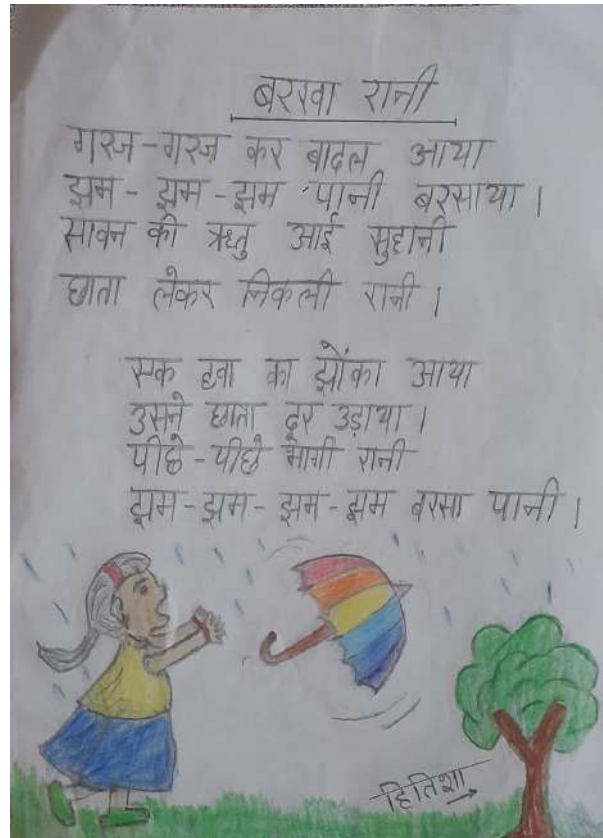 बरखा रानी
गरज-गरज कर बादल आया
झम-झम-झम पानी बरसाया।
सावन की ऋतु आई सुहानी
छाता लेकर निकली रानी।
एक हवा का झोंका आया
उसने छाता दूर उड़ाया।
पीछे-पीछे भागी रानी
झम-झम-झम-झम बरसा पानी।
हितिशा